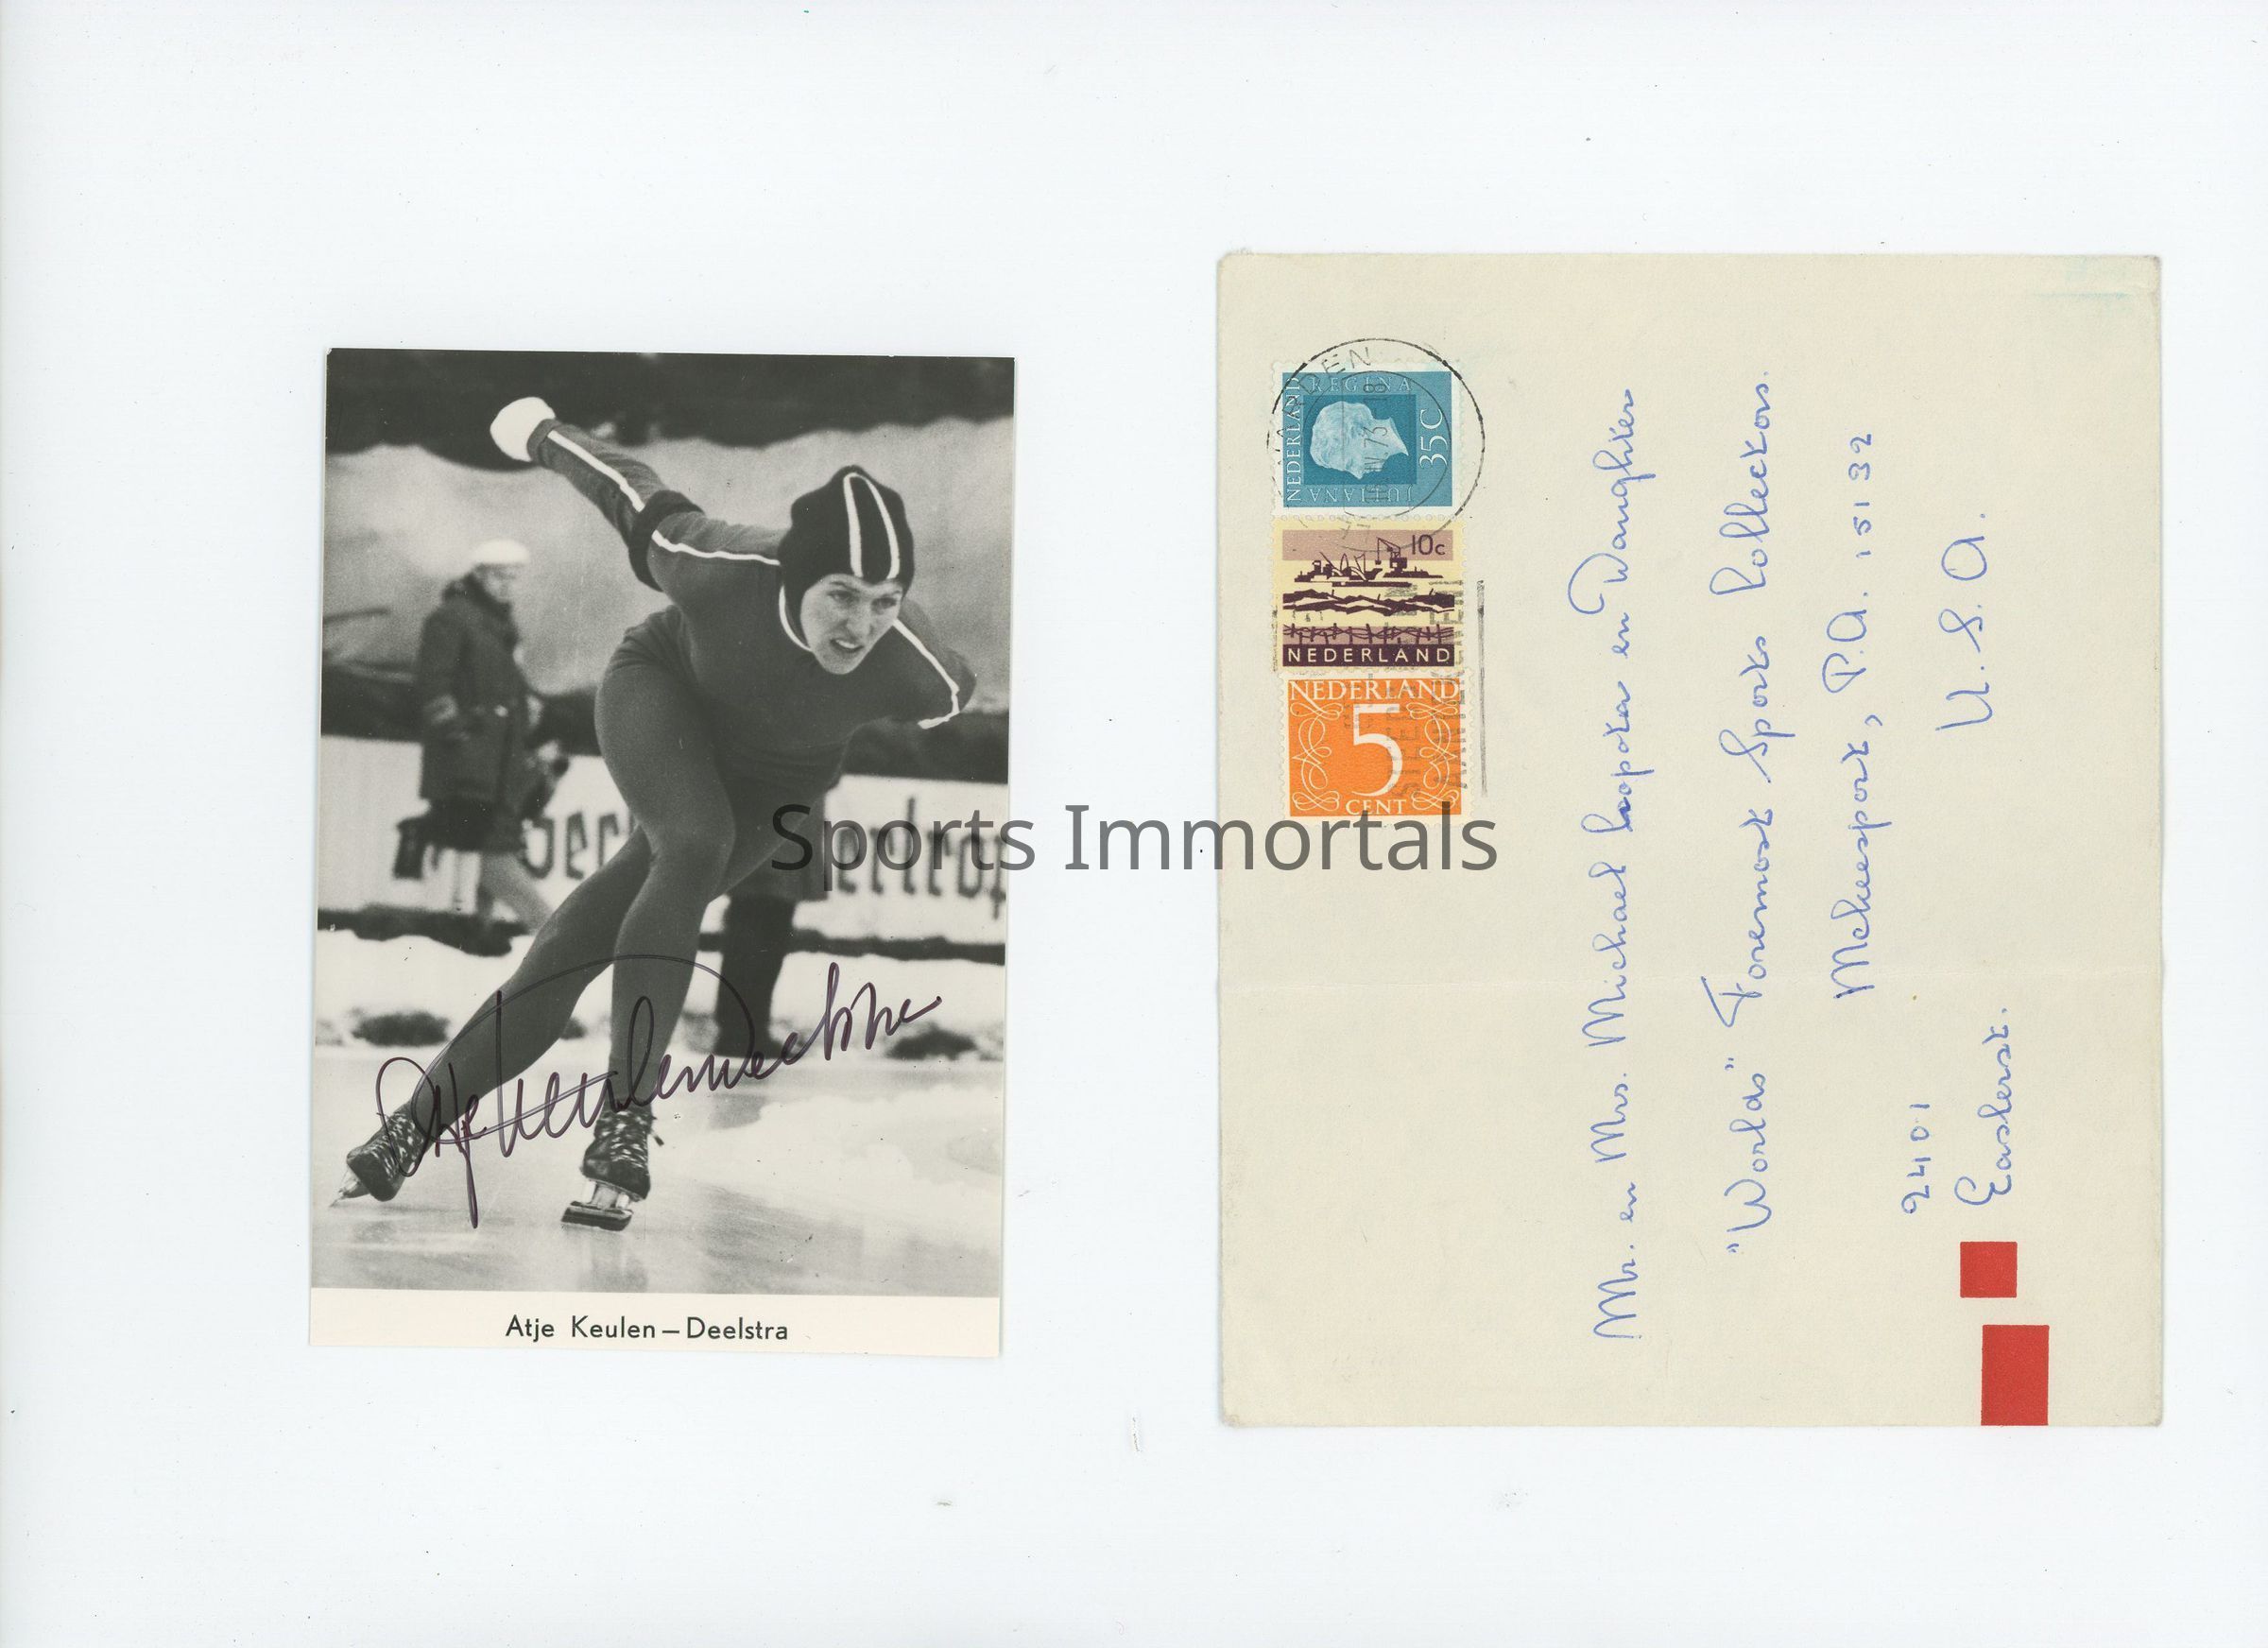 Atje Keulen Deelstra
Atje Keulen – Deelstra
Sports Immortals
NEDERLAND
REGINA
JULIANA
35C
10c
NEDERLAND
NEDERLAND
5
CENT
Mr. en Mrs. Michael en Daughter
"Worlds" Foremost Sports Collectors.
Mckeesport, P.A. 15132
U.S.A.
92401
Easterst.